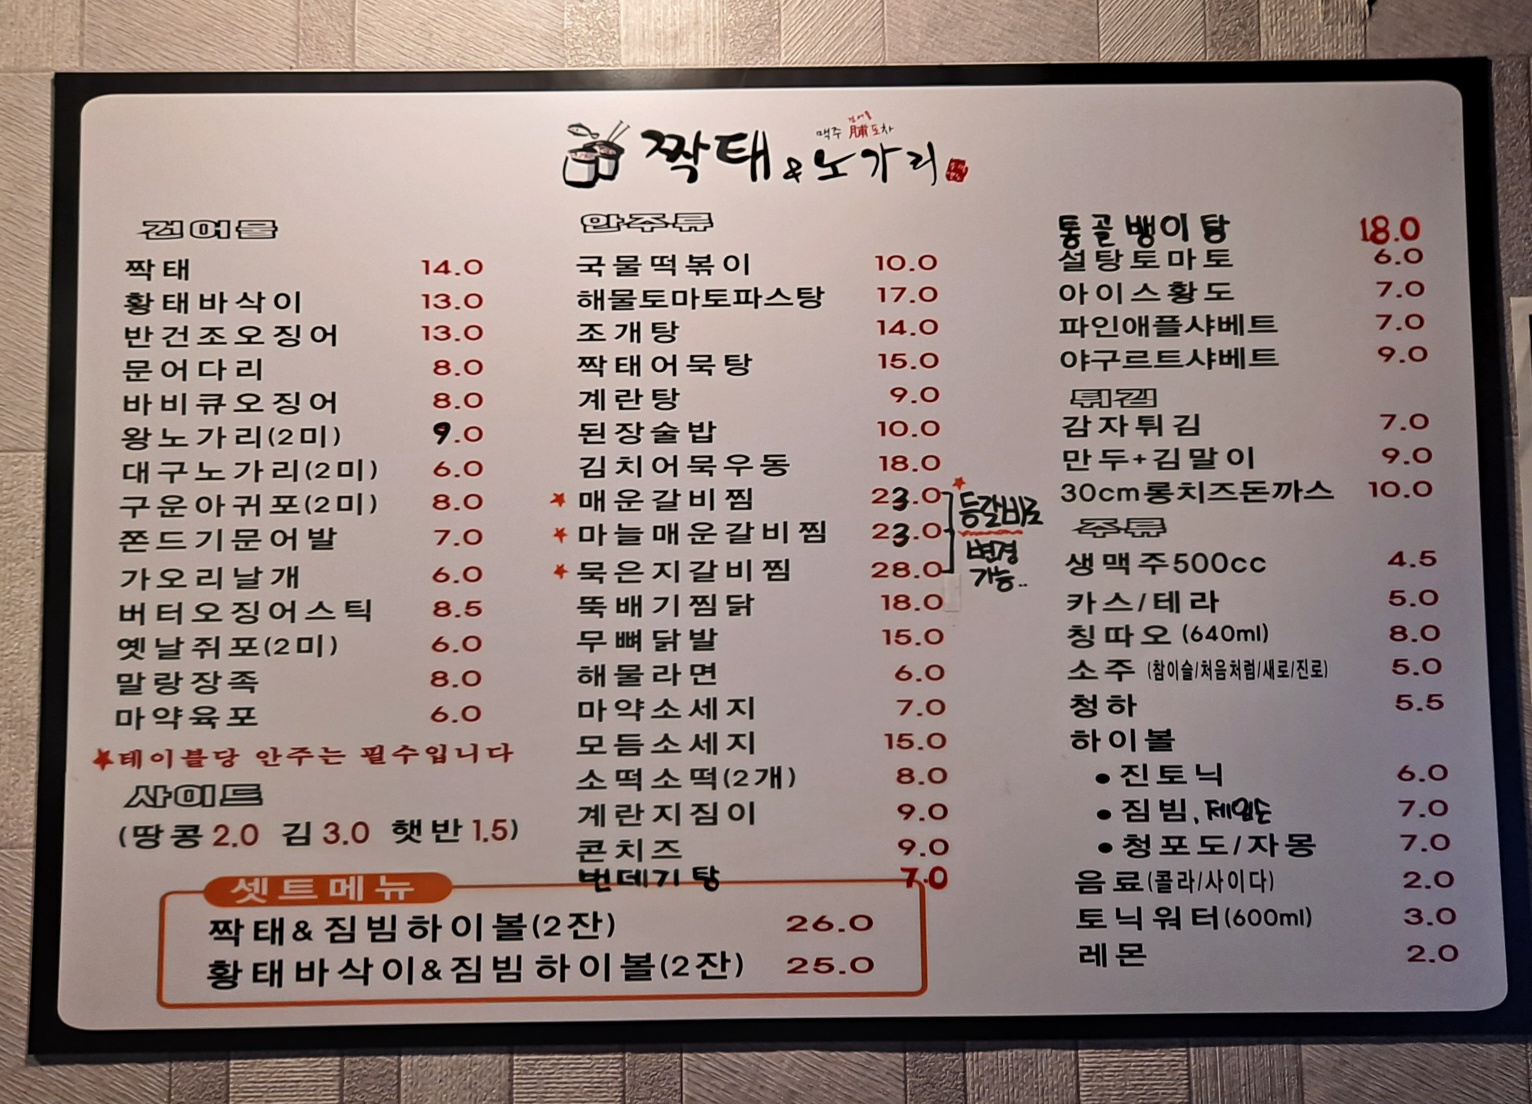 맥주 脯 포차
짝태 & 노가리
건어물
짝태 14.0
황태바삭이 13.0
반건조오징어 13.0
문어다리 8.0
바비큐오징어 8.0
왕노가리(2미) 9.0
대구노가리(2미) 6.0
구운아귀포(2미) 8.0
쫀드기문어발 7.0
가오리날개 6.0
버터오징어스틱 8.5
옛날쥐포(2미) 6.0
말랑장족 8.0
마약육포 6.0
★테이블당 안주는 필수입니다
사이드
(땅콩 2.0 김 3.0 햇반 1.5)
안주류
국물떡볶이 10.0
해물토마토파스탕 17.0
조개탕 14.0
짝태어묵탕 15.0
계란탕 9.0
된장술밥 10.0
김치어묵우동 18.0
★ 매운갈비찜 23.0
★ 마늘매운갈비찜 23.0
★ 묵은지갈비찜 28.0
★
등갈비로
변경
가능..
뚝배기찜닭 18.0
무뼈닭발 15.0
해물라면 6.0
마약소세지 7.0
모듬소세지 15.0
소떡소떡(2개) 8.0
계란지짐이 9.0
콘치즈 9.0
번데기탕 7.0
셋트메뉴
짝태&짐빔하이볼(2잔) 26.0
황태바삭이&짐빔하이볼(2잔) 25.0
통골뱅이탕 18.0
설탕토마토 6.0
아이스황도 7.0
파인애플샤베트 7.0
야구르트샤베트 9.0
튀김
감자튀김 7.0
만두+김말이 9.0
30cm롱치즈돈까스 10.0
주류
생맥주500cc 4.5
카스/테라 5.0
칭따오 (640ml) 8.0
소주 (참이슬/처음처럼/새로/진로) 5.0
청하 5.5
하이볼
● 진토닉 6.0
● 짐빔, 제임슨 7.0
● 청포도/자몽 7.0
음료(콜라/사이다) 2.0
토닉워터(600ml) 3.0
레몬 2.0